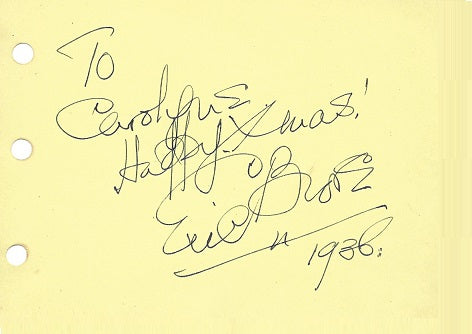 To
Carolyne
Happy Xmas!
Eric Blore
1936.